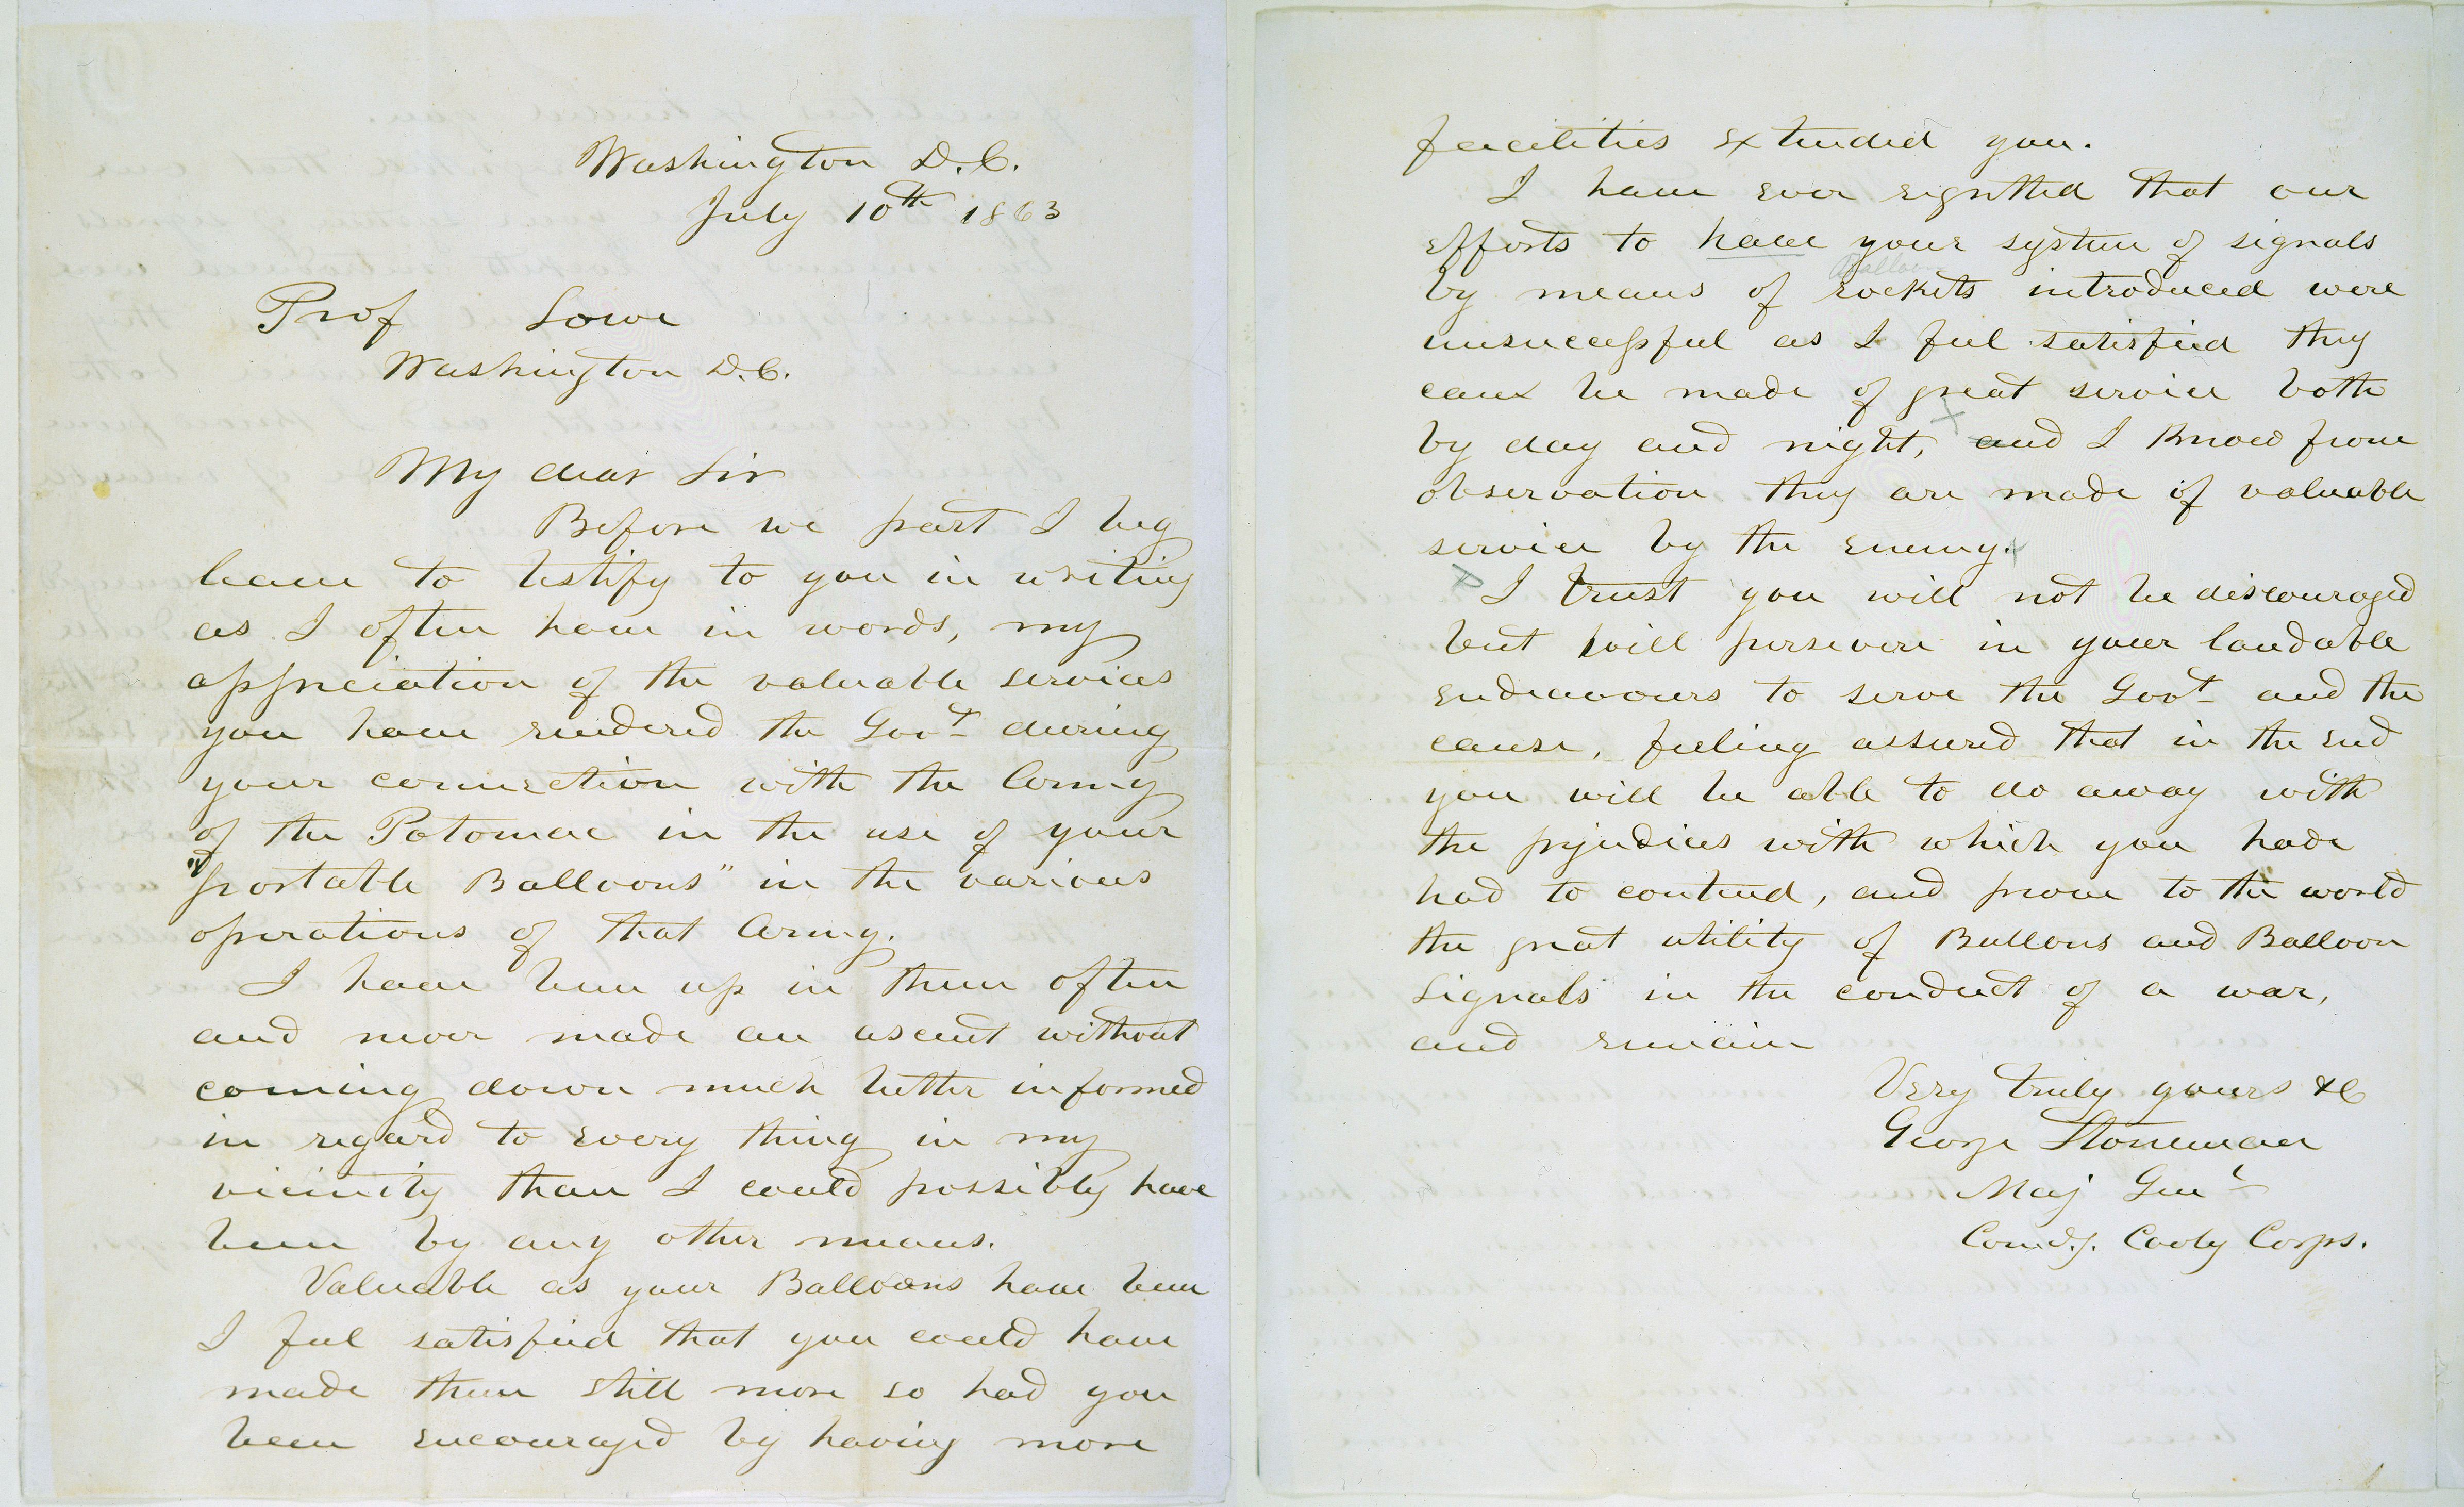 Washington D.C.
July 10th 1863
Prof Lowe
Washington D.C.
My dear Sir
Before we part I beg
leave to testify to you in writing
as I often have in words, my
appreciation of the valuable services
you have rendered the Govt during
your connection with the Army
of the Potomac in the use of your
"portable Balloons" in the various
operations of that Army.
I have been up in them often
and never made an ascent without
coming down much better informed
in regard to every thing in my
vicinity than I could possibly have
been by any other means.
Valuable as your Balloons have been
I feel satisfied that you could have
made them still more so had you
been encouraged by having more
facilities extended you.
I have ever regretted that our
efforts to have your system of signals
Balloon
by means of rockets introduced were
unsuccessful as I feel satisfied they
can be made of great service both
by day and night, and I know from
observation they are made of valuable
service by the enemy.
I trust you will not be discouraged
but will persevere in your laudable
endeavours to serve the Govt and the
cause, feeling assured that in the end
you will be able to do away with
the prejudices with which you have
had to contend, and prove to the world
the great utility of Ballons and Balloon
Signals in the conduct of a war,
and remain
Very truly yours &c
George Stoneman
Maj Genl
Comdg. Cavly Corps.